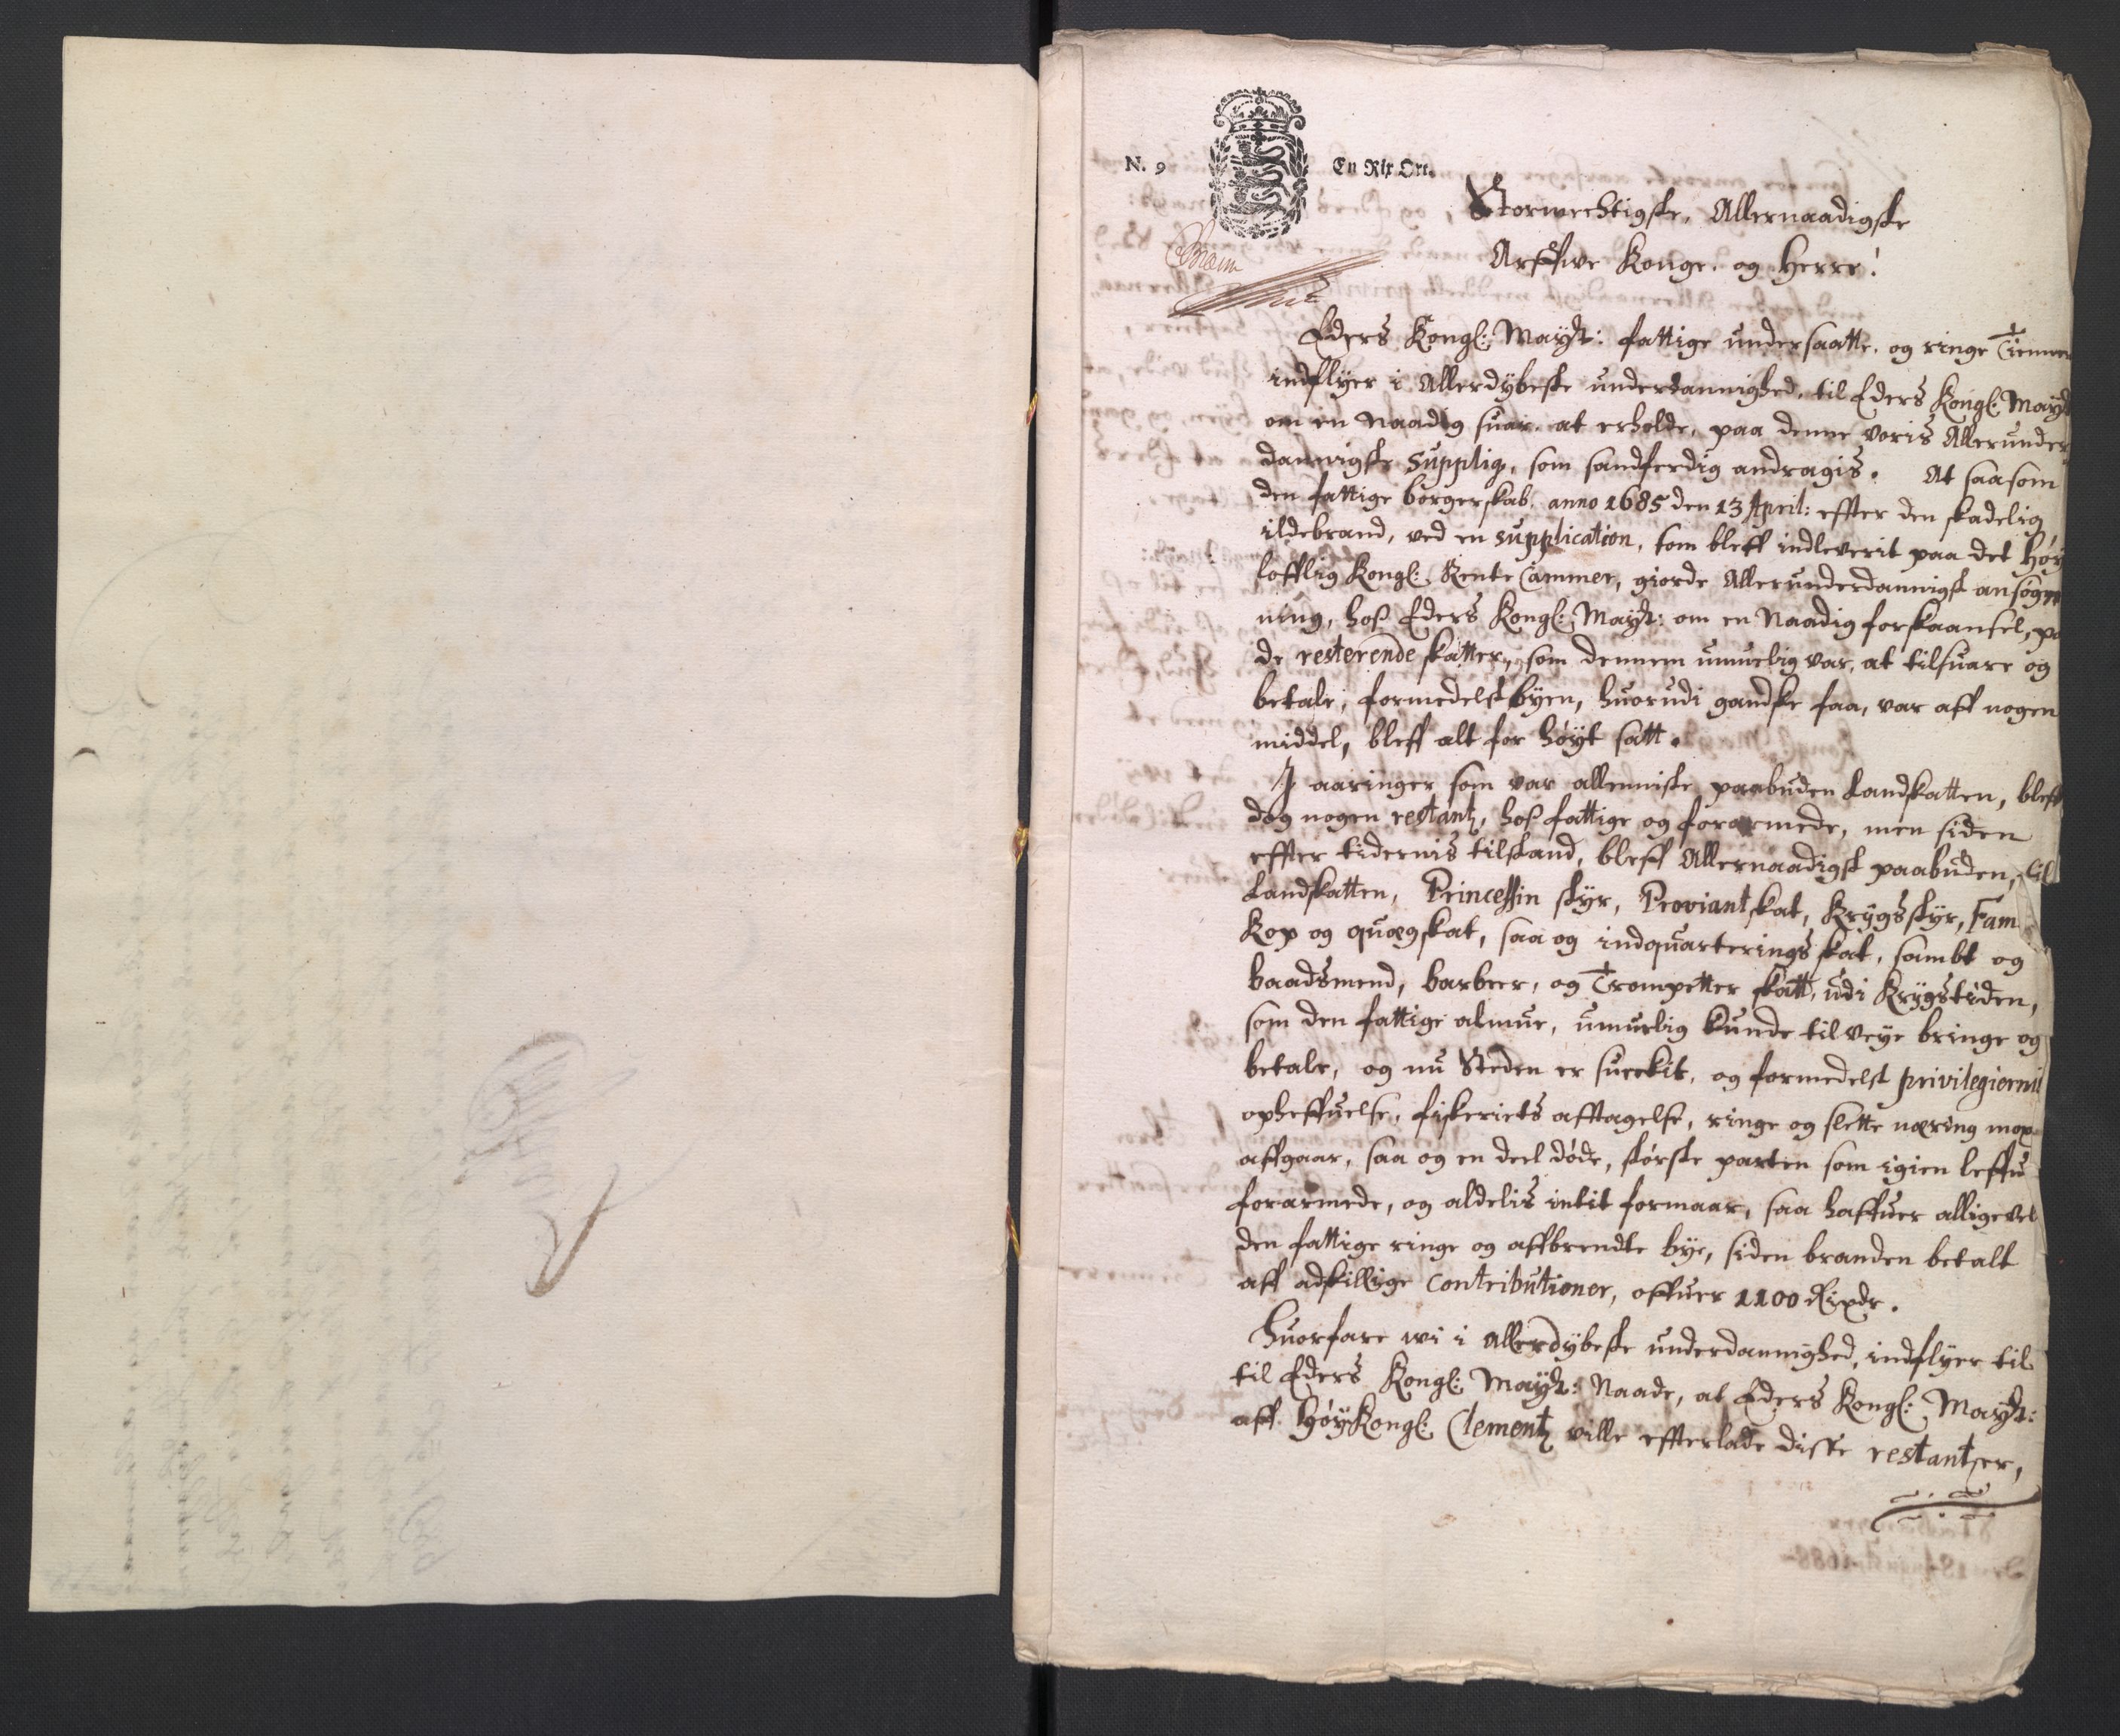 N. 9 En Rix Ort.
Stormechtigste, Allernaadigste
Arffwe Konge, og Herre!
Eders Kongl: Mayt: fattige undersaatte, og ringe Tienner
indflyer i Allerdybeste underdannighed, til Eders Kongl: Mayt
om en Naadig suar, at erholde, paa denne voris Allerunder
dannigste Suppliq, som sandferdig andragis. At saasom
den fattige borgerskab, anno 1685 den 13 April: effter den skadelig
ildebrand, ved en supplication, som bleff indleverit paa det høy
lofflig Kongl: Rente Cammer, giorde Allerunderdannigst ansøgn
ning, hoß Eders Kongl: Mayt: om en Naadig forskaansel, pa
de resterende skatter, som dennem umuelig var, at tilsuare og
betale, formedelst byen, huorudi gandske faa, var aff nogen
middel, bleff alt for høyt satt.
I aaringer som var alleniste paabuden Landskatten, bleff
dog nogen restantz, hoß fattige og forarmede, men siden
effter tidernis tilstand, bleff Allernaadigst paabuden, til
Landskatten, Princessin styr, Proviant skat, Krygsstyr, Fam
Kop og quægskat, saa og indquarterings skat, sambt og
baadsmend, barbeer, og Trompetter skatt, udi Krygstiden,
som den fattige almue, umuelig kunde tilveye bringe og
betale, og nu Steden er suekit, og formedelst privilegierni
opheffuelse, fiskeriets afftagelse, ringe og slette næring
affgaar, saa og en deel døde, største parten som igien leffu
forarmede, og aldelis intit formaar, saa haffuer alligevel
den fattige ringe og affbrendte bye, siden branden betalt
aff adskillige Contributioner, offuer 1100 Rixdr.
Huorfore wi i Allerdybeste underdannighed, indflyer til
til Eders Kongl: Mayt: Naade, at Eders Kongl: Mayt:
aff HøyKongl: Clementz ville effterlade disse restantzer,